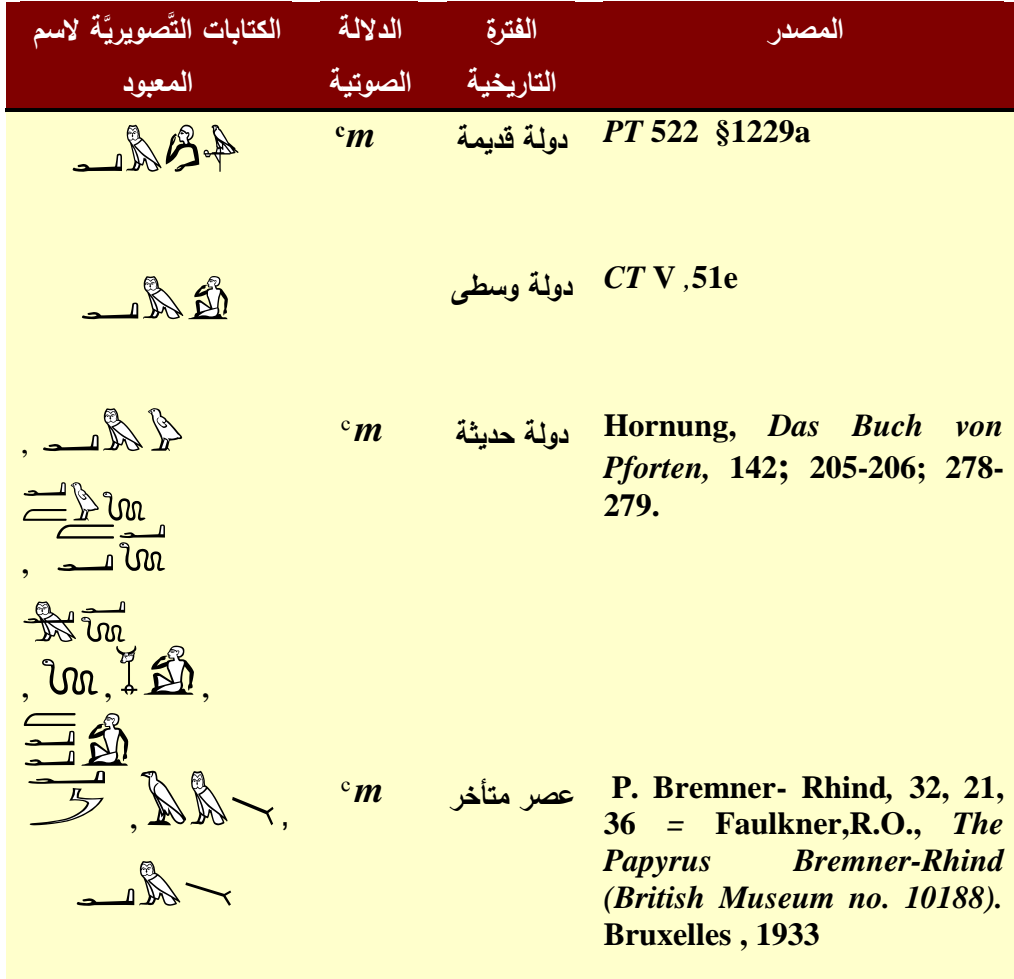 الكتابات التَّصويريَّة لاسم
المعبود
الدلالة
الصوتية
الفترة
التاريخية
المصدر
ᶜm
دولة قديمة
PT 522 §1229a
دولة وسطى
CT V ,51e
ᶜm
دولة حديثة
Hornung, Das Buch von
Pforten, 142; 205-206; 278-
279.
ᶜm
عصر متأخر
P. Bremner- Rhind, 32, 21,
36 = Faulkner,R.O., The
Papyrus Bremner-Rhind
(British Museum no. 10188).
Bruxelles , 1933